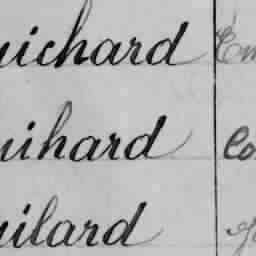 uichard Em
uihard Co
uilard